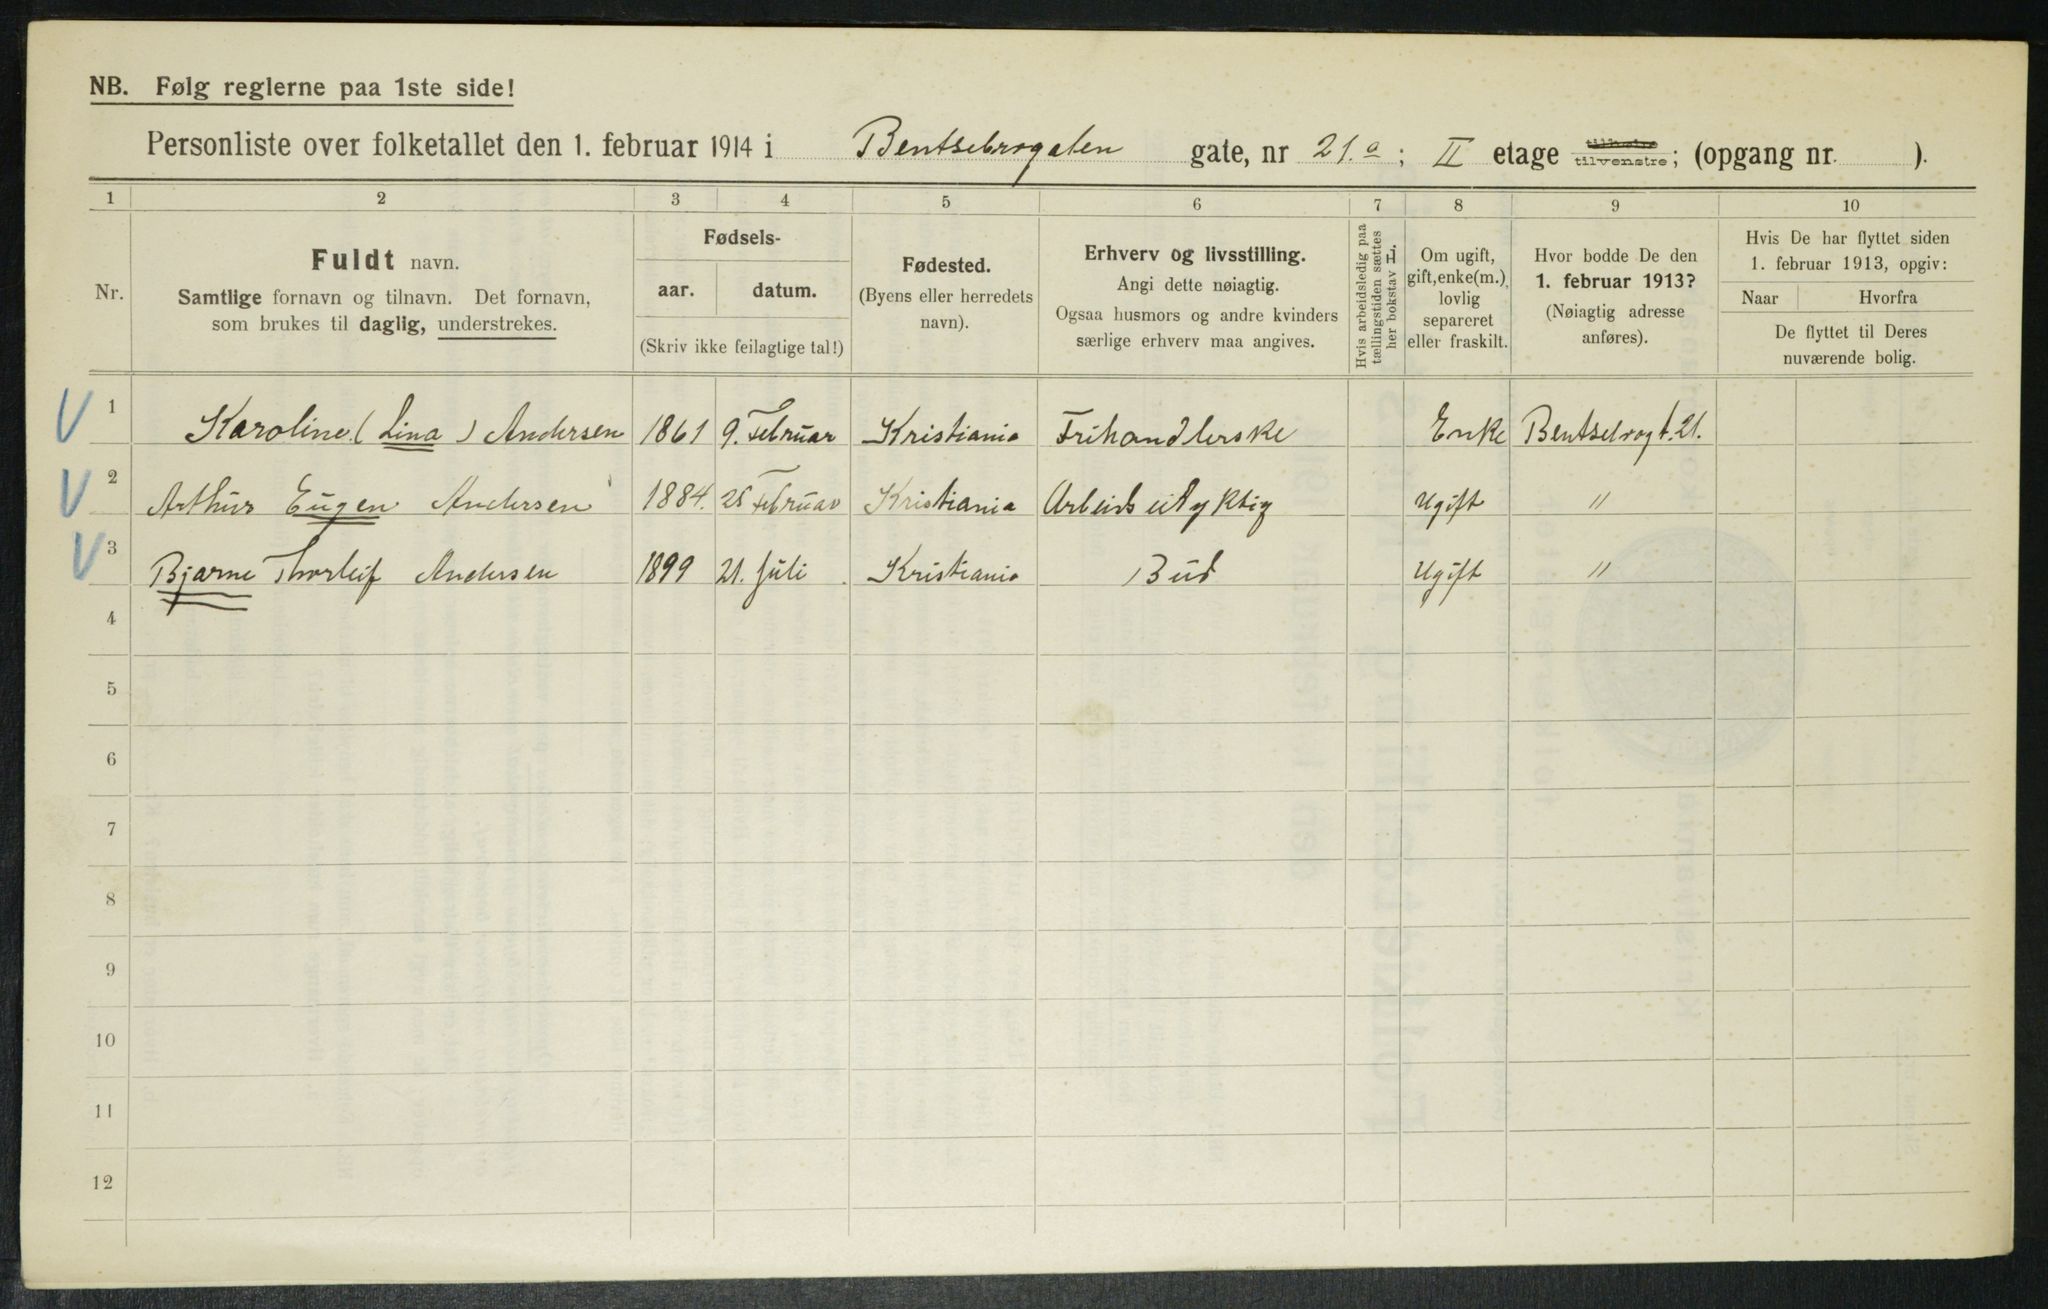 NB. Følg reglerne paa 1ste side!
Personliste over folketallet den 1. februar 1914 i Bentsebrogaten gate, nr 21.a; II etage tilhøire tilvenstre; (opgang nr. ).
1 2 3 4 5 6 7 8 9 10
Nr.
Fuldt navn.
Samtlige fornavn og tilnavn. Det fornavn,
som brukes til daglig, understrekes.
Fødsels-
aar. datum.
(Skriv ikke feilagtige tal!)
Fødested.
(Byens eller herredets
navn).
Erhverv og livsstilling.
Angi dette nøiagtig.
Ogsaa husmors og andre kvinders
særlige erhverv maa angives.
Hvis arbeidsledig paa
tællingstiden sættes
her bokstav L.
Om ugift,
gift, enke(m.),
lovlig
separeret
eller fraskilt.
Hvor bodde De den
1. februar 1913?
(Nøiagtig adresse
anføres).
Hvis De har flyttet siden
1. februar 1913, opgiv:
Naar Hvorfra
De flyttet til Deres
nuværende bolig.
1 Karoline (Lina) Andersen 1861 9. Februar Kristiania Frihandlerske Enke Bentsebrogt. 21.
2 Arthur Eugen Andersen 1884. Februar Kristiania Ugift "
3 Bjarne Thorleif Andersen 1899 21. Juli Kristiania Bud Ugift "
4
5
6
7
8
9
10
11
12